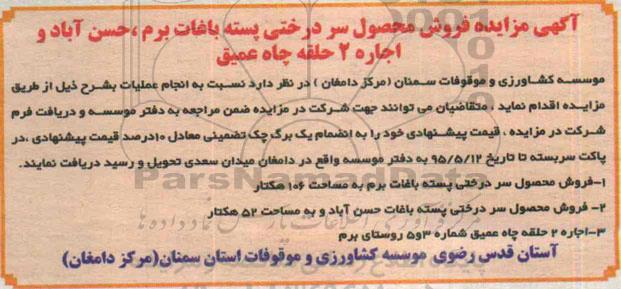 آگهی مزایده فروش محصول سر درختی پسته باغات برم ،حسن آباد و
اجاره ۲ حلقه چاه عمیق
موسسه کشاورزی و موقوفات سمنان (مرکز دامغان ) در نظر دارد نسبت به انجام عملیات بشرح ذیل از طریق
مزایده اقدام نماید ، متقاضیان می توانند جهت شرکت در مزایده ضمن مراجعه به دفتر موسسه و دریافت فرم
شرکت در مزایده ، قیمت پیشنهادی خود را به انضمام یک برگ چک تضمینی معادل ۱۰درصد قیمت پیشنهادی ،در
پاکت سربسته تا تاریخ ۹۵/۵/۱۲ به دفتر موسسه واقع در دامغان میدان سعدی تحویل و رسید دریافت نمایند.
ParsNamadData
۱-فروش محصول سر درختی پسته باغات برم به مساحت ۱۰۶ هکتار
۲- فروش محصول سر درختی پسته باغات حسن آباد و به مساحت ۵۲ هکتار
۳-اجاره ۲ حلقه چاه عمیق شماره ۳و۵ روستای برم
آستان قدس رضوی موسسه کشاورزی و موقوفات استان سمنان(مرکز دامغان)